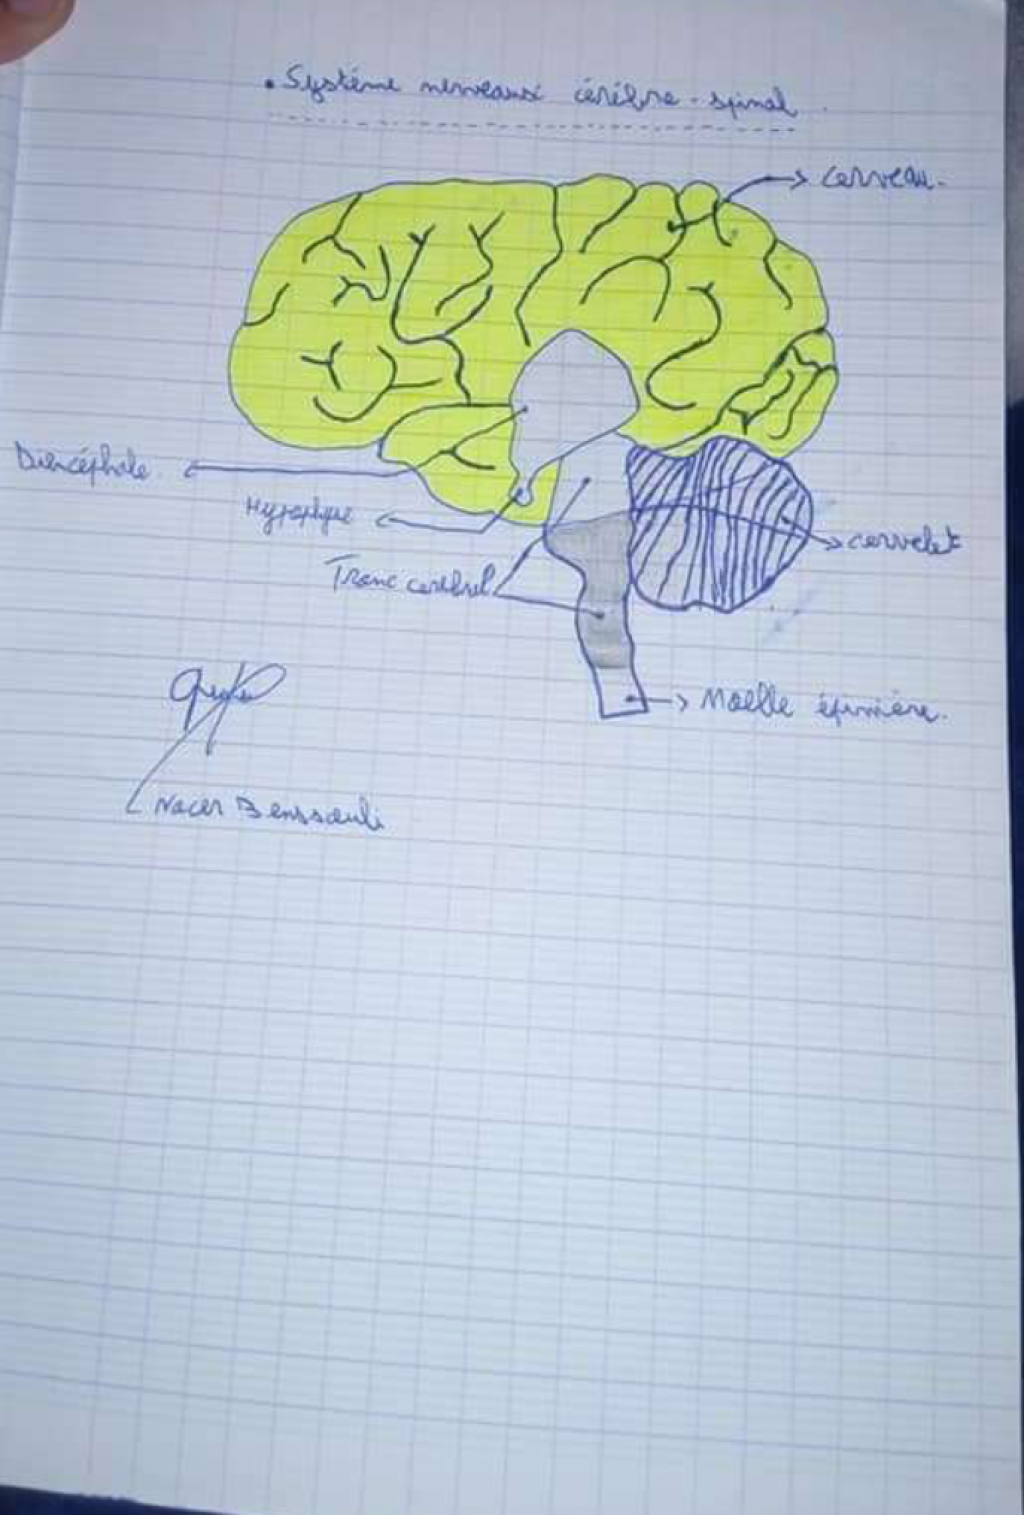 • Système nerveaux cérébro-spinal
cerveau.
Diencéphale.
Hypophyse
cervelet
Tronc cerebrel
Moelle épinière.
Nacer Benssaouli